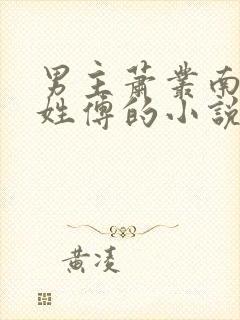 男主萧叢南
姓傅的小說
黄凌